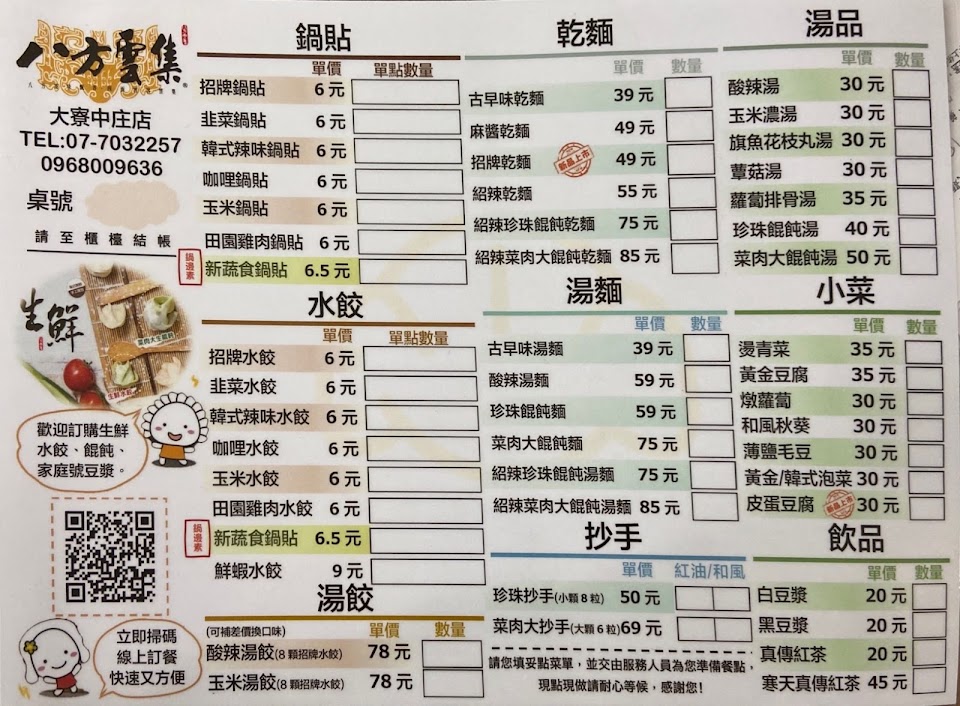 八方雲集
大寮中庄店
TEL:07-7032257
0968009636
桌號
請至櫃檯結帳
生鮮
菜肉大生餛飩
生鮮水餃
歡迎訂購生鮮
水餃、餛飩、
家庭號豆漿。
立即掃碼
線上訂餐
快速又方便
鍋貼
單價 單點數量
招牌鍋貼 6 元
韭菜鍋貼 6 元
韓式辣味鍋貼 6 元
咖哩鍋貼 6 元
玉米鍋貼 6 元
田園雞肉鍋貼 6 元
鍋邊素 新蔬食鍋貼 6.5 元
水餃
單價 單點數量
招牌水餃 6 元
韭菜水餃 6 元
韓式辣味水餃 6 元
咖哩水餃 6 元
玉米水餃 6 元
田園雞肉水餃 6 元
鍋邊素 新蔬食鍋貼 6.5 元
鮮蝦水餃 9 元
湯餃
(可補差價換口味) 單價 數量
酸辣湯餃(8 顆招牌水餃) 78 元
玉米湯餃(8 顆招牌水餃) 78 元
乾麵
單價 數量
古早味乾麵 39 元
麻醬乾麵 49 元
招牌乾麵 新品上市 49 元
紹辣乾麵 55 元
紹辣珍珠餛飩乾麵 75 元
紹辣菜肉大餛飩乾麵 85 元
湯麵
單價 數量
古早味湯麵 39 元
酸辣湯麵 59 元
珍珠餛飩麵 59 元
菜肉大餛飩麵 75 元
紹辣珍珠餛飩湯麵 75 元
紹辣菜肉大餛飩湯麵 85 元
抄手
單價 紅油/和風
珍珠抄手(小顆 8 粒) 50 元
菜肉大抄手(大顆 6 粒) 69 元
請您填妥點菜單，並交由服務人員為您準備餐點，
現點現做請耐心等候，感謝您！
湯品
單價 數量
酸辣湯 30 元
玉米濃湯 30 元
旗魚花枝丸湯 30 元
蕈菇湯 30 元
蘿蔔排骨湯 35 元
珍珠餛飩湯 40 元
菜肉大餛飩湯 50 元
小菜
單價 數量
燙青菜 35 元
黃金豆腐 35 元
燉蘿蔔 30 元
和風秋葵 30 元
薄鹽毛豆 30 元
黃金/韓式泡菜 30 元
皮蛋豆腐 新品上市 30 元
飲品
單價 數量
白豆漿 20 元
黑豆漿 20 元
真傳紅茶 20 元
寒天真傳紅茶 45 元